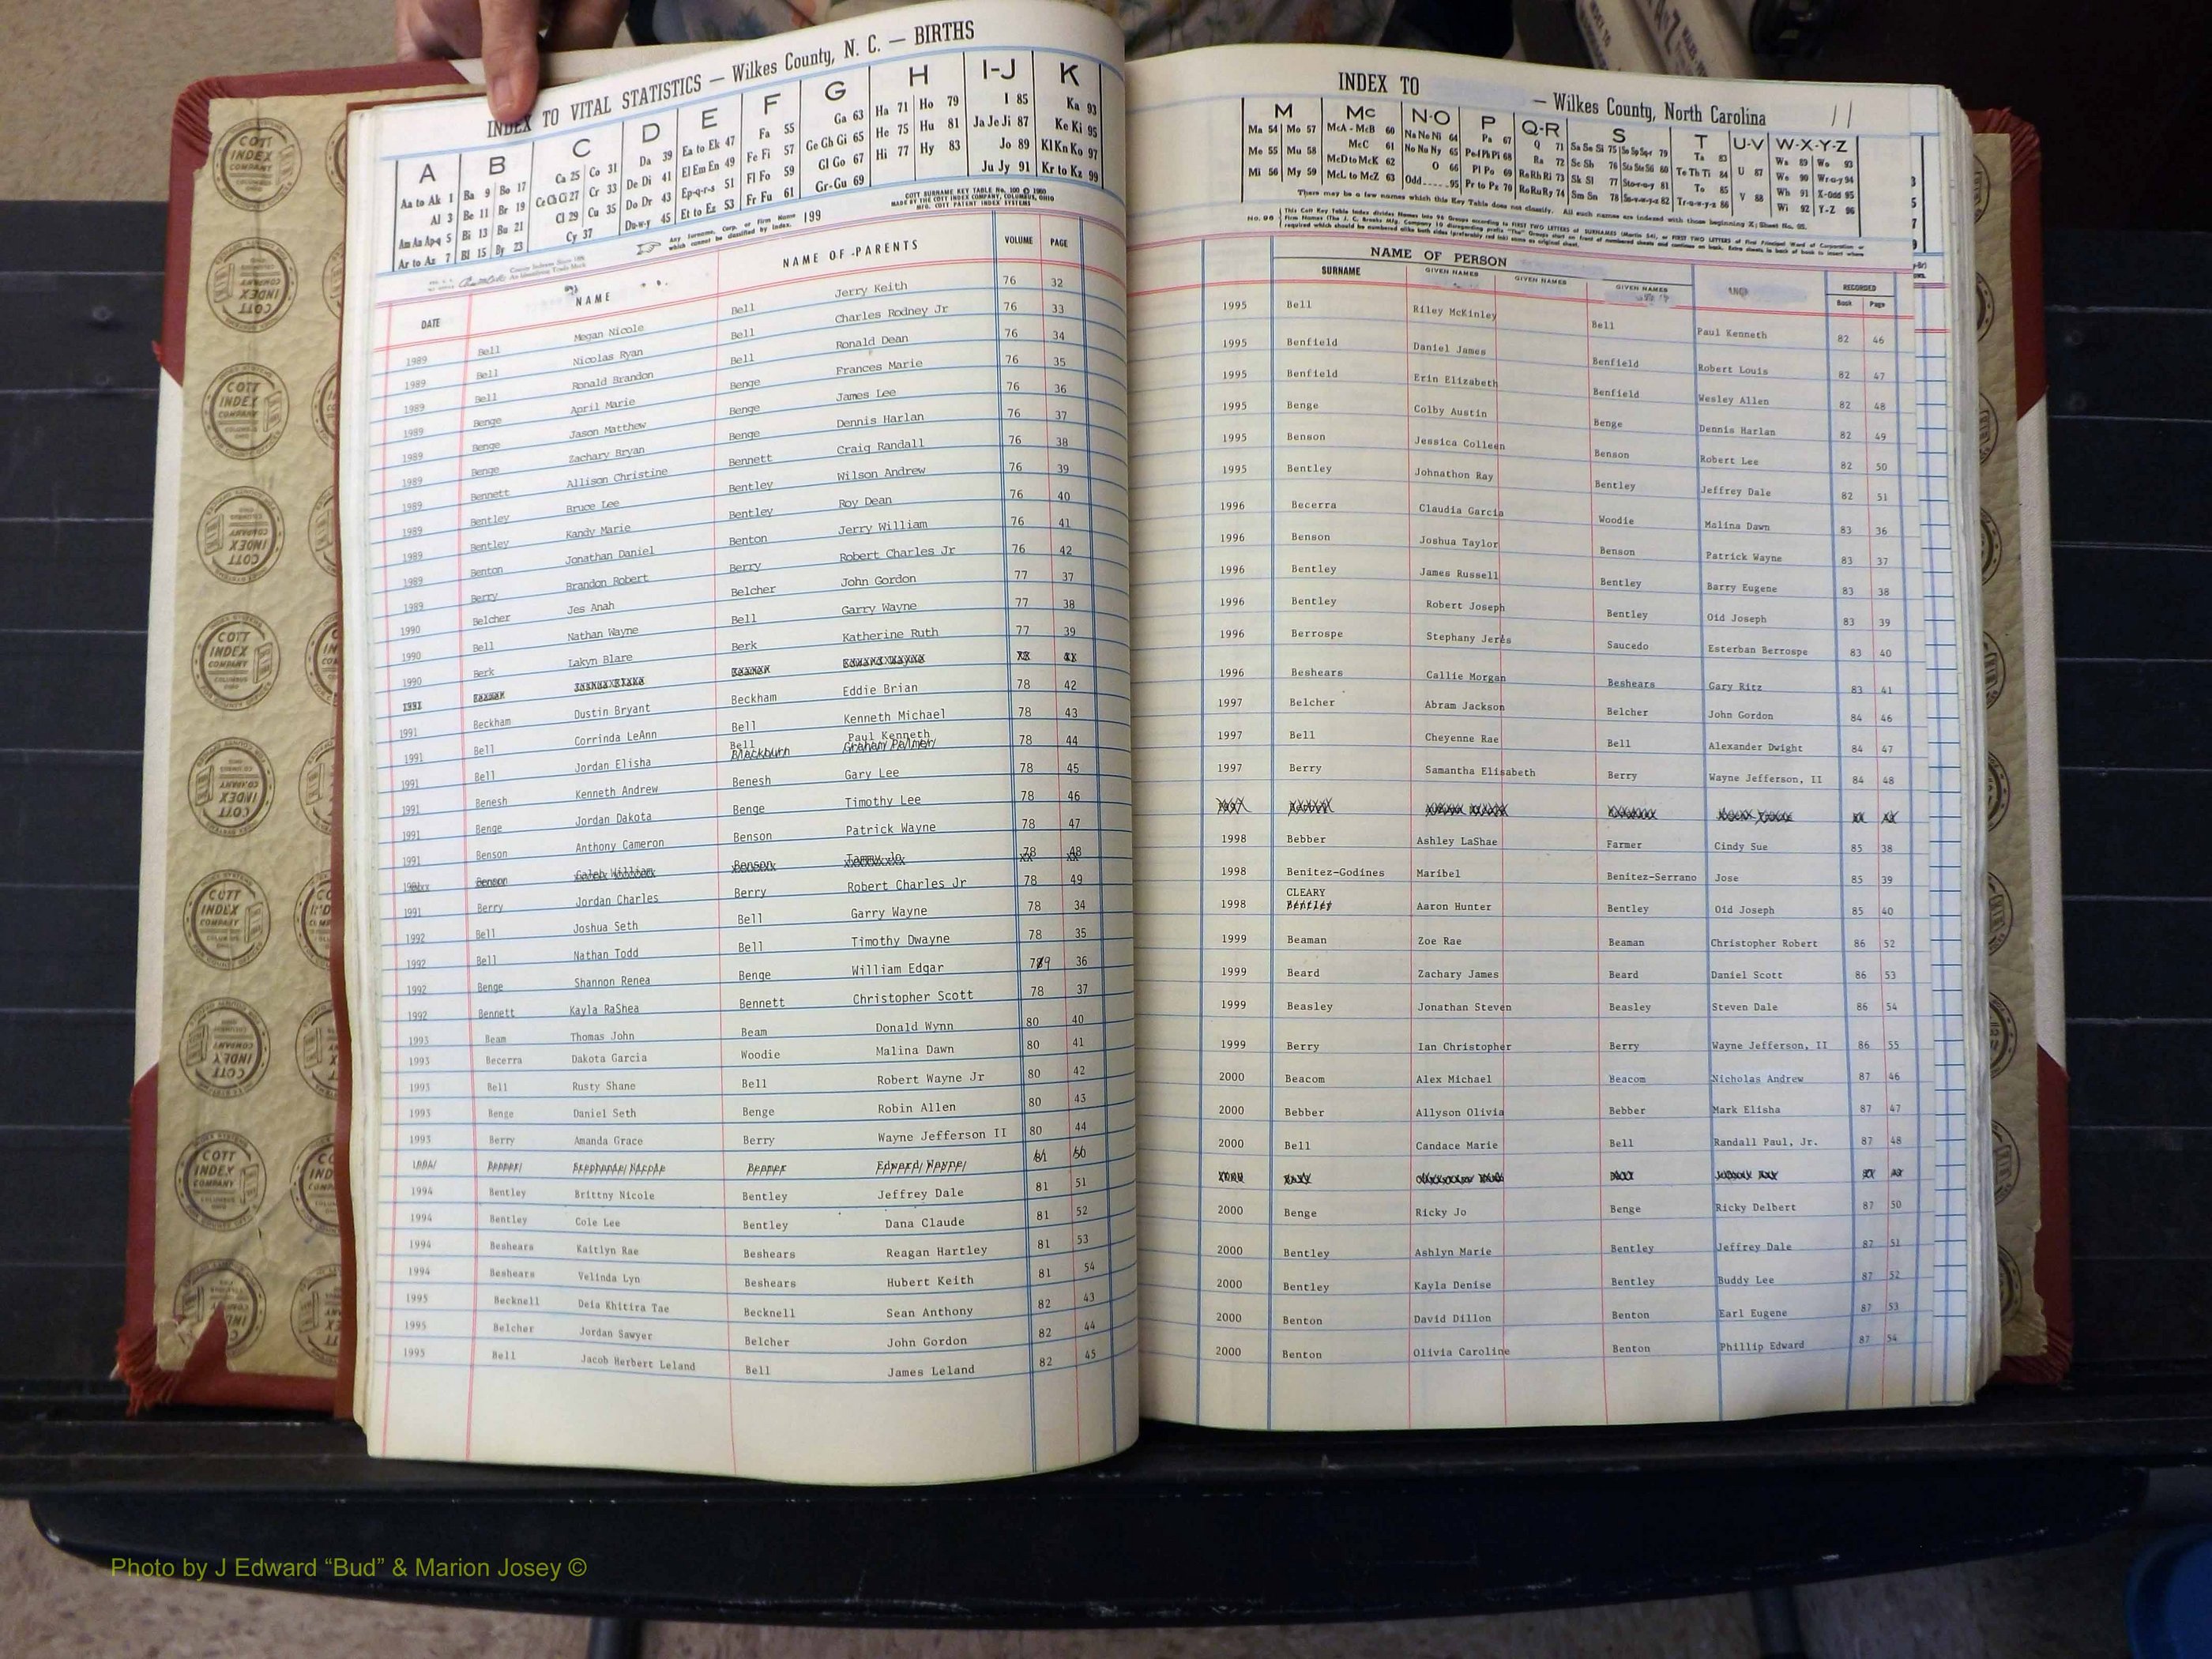 INDEX TO VITAL STATISTICS — Wilkes County, N. C. — BIRTHS
A B C D E F G H I-J K
Aa to Ak 1 Ba 9 Bo 17 Ca 25 Co 31 Da 39 Ea to Ek 47 Fa 55 Ga 63 Ha 71 Ho 79 I 85 Ka 93
Al 3 Be 11 Br 19 Ce Ch Ci 27 Cr 33 De Di 41 El Em En 49 Fe Fi 57 Ge Gh Gi 65 He 75 Hu 81 Ja Je Ji 87 Ke Ki 95
Am An Ap-q 5 Bi 13 Bu 21 Cl 29 Cu 35 Do Dr 43 Ep-q-r-s 51 Fl Fo 59 Gl Go 67 Hi 77 Hy 83 Jo 89 Kl Kn Ko 97
Ar to Az 7 Bl 15 By 23 Cy 37 Du-w-y 45 Et to Ez 53 Fr Fu 61 Gr-Gu 69 Ju Jy 91 Kr to Kz 99
Any Surname, Corp. or Firm Name which cannot be classified by index. 199
COTT SURNAME KEY TABLE No. 100 © 1960
MADE BY THE COTT INDEX COMPANY, COLUMBUS, OHIO
MFG. COTT PATENT INDEX SYSTEMS
DATE NAME NAME OF PARENTS VOLUME PAGE
1989 Bell Megan Nicole Bell Jerry Keith 76 32
1989 Bell Nicolas Ryan Bell Charles Rodney Jr 76 33
1989 Bell Ronald Brandon Bell Ronald Dean 76 34
1989 Benge April Marie Benge Frances Marie 76 35
1989 Benge Jason Matthew Benge James Lee 76 36
1989 Benge Zachary Bryan Benge Dennis Harlan 76 37
1989 Bennett Allison Christine Bennett Craig Randall 76 38
1989 Bentley Bruce Lee Bentley Wilson Andrew 76 39
1989 Bentley Kandy Marie Bentley Roy Dean 76 40
1989 Benton Jonathan Daniel Benton Jerry William 76 41
1989 Berry Brandon Robert Berry Robert Charles Jr 76 42
1990 Belcher Jes Anah Belcher John Gordon 77 37
1990 Bell Nathan Wayne Bell Garry Wayne 77 38
1990 Berk Lakyn Blare Berk Katherine Ruth 77 39
1991
1991 Beckham Dustin Bryant Beckham Eddie Brian 78 42
1991 Bell Corrinda LeAnn Bell Kenneth Michael 78 43
1991 Bell Jordan Elisha Bell Blackburn Paul Kenneth Graham Palmer 78 44
1991 Benesh Kenneth Andrew Benesh Gary Lee 78 45
1991 Benge Jordan Dakota Benge Timothy Lee 78 46
1991 Benson Anthony Cameron Benson Patrick Wayne 78 47
Benson Caleb William Benson Tammy Jo 78 48
1991 Berry Jordan Charles Berry Robert Charles Jr 78 49
1992 Bell Joshua Seth Bell Garry Wayne 78 34
1992 Bell Nathan Todd Bell Timothy Dwayne 78 35
1992 Benge Shannon Renea Benge William Edgar 789 36
1992 Bennett Kayla RaShea Bennett Christopher Scott 78 37
1993 Beam Thomas John Beam Donald Wynn 80 40
1993 Becerra Dakota Garcia Woodie Malina Dawn 80 41
1993 Bell Rusty Shane Bell Robert Wayne Jr 80 42
1993 Benge Daniel Seth Benge Robin Allen 80 43
1993 Berry Amanda Grace Berry Wayne Jefferson II 80 44
Beamer Edward Wayne
1994 Bentley Brittny Nicole Bentley Jeffrey Dale 81 51
1994 Bentley Cole Lee Bentley Dana Claude 81 52
1994 Beshears Kaitlyn Rae Beshears Reagan Hartley 81 53
1994 Beshears Velinda Lyn Beshears Hubert Keith 81 54
1995 Becknell Deia Khitira Tae Becknell Sean Anthony 82 43
1995 Belcher Jordan Sawyer Belcher John Gordon 82 44
1995 Bell Jacob Herbert Leland Bell James Leland 82 45
INDEX TO — Wilkes County, North Carolina 11
M Mc N-O P Q-R S T U-V W-X-Y-Z
Ma 54 Mo 57 McA - McB 60 Na Ne Ni 64 Pa 67 Q 71 Sa Se Si 75 Sn So Sp Sq-r 79 Ta 83 Wa 89 Wo 93
Me 55 Mu 58 McC 61 No Nu Ny 65 Pe-f Ph Pi 68 Ra 72 Sc Sh 76 Sta Ste Sti 80 Te Th Ti 84 U 87 We 90 Wr-u-y 94
Mi 56 My 59 McD to McK 62 O 66 Pl Po 69 Re Rh Ri 73 Sk Sl 77 Sto-r-u-y 81 To 85 Wh 91 X-Odd 95
McL to McZ 63 Odd 95 Pr to Pz 70 Ro Ru Ry 74 Sm Sn 78 Su-v-w-y-z 82 Tr-u-w-y-z 86 V 88 Wi 92 Y-Z 96
There may be a few names which this Key Table does not classify. All such names are indexed with those beginning X; Sheet No. 95.
NAME OF PERSON
SURNAME GIVEN NAMES GIVEN NAMES GIVEN NAMES RECORDED
Book Page
1995 Bell Riley McKinley Bell Paul Kenneth 82 46
1995 Benfield Daniel James Benfield Robert Louis 82 47
1995 Benfield Erin Elizabeth Benfield Wesley Allen 82 48
1995 Benge Colby Austin Benge Dennis Harlan 82 49
1995 Benson Jessica Colleen Benson Robert Lee 82 50
1995 Bentley Johnathon Ray Bentley Jeffrey Dale 82 51
1996 Becerra Claudia Garcia Woodie Malina Dawn 83 36
1996 Benson Joshua Taylor Benson Patrick Wayne 83 37
1996 Bentley James Russell Bentley Barry Eugene 83 38
1996 Bentley Robert Joseph Bentley Oid Joseph 83 39
1996 Berrospe Stephany Jeres Saucedo Esterban Berrospe 83 40
1996 Beshears Callie Morgan Beshears Gary Ritz 83 41
1997 Belcher Abram Jackson Belcher John Gordon 84 46
1997 Bell Cheyenne Rae Bell Alexander Dwight 84 47
1997 Berry Samantha Elisabeth Berry Wayne Jefferson, II 84 48
1998 Bebber Ashley LaShae Farmer Cindy Sue 85 38
1998 Benitez-Godines Maribel Benitez-Serrano Jose 85 39
CLEARY
1998 Bentley Aaron Hunter Bentley Oid Joseph 85 40
1999 Beaman Zoe Rae Beaman Christopher Robert 86 52
1999 Beard Zachary James Beard Daniel Scott 86 53
1999 Beasley Jonathan Steven Beasley Steven Dale 86 54
1999 Berry Ian Christopher Berry Wayne Jefferson, II 86 55
2000 Beacom Alex Michael Beacom Nicholas Andrew 87 46
2000 Bebber Allyson Olivia Bebber Mark Elisha 87 47
2000 Bell Candace Marie Bell Randall Paul, Jr. 87 48
2000 Benge Ricky Jo Benge Ricky Delbert 87 50
2000 Bentley Ashlyn Marie Bentley Jeffrey Dale 87 51
2000 Bentley Kayla Denise Bentley Buddy Lee 87 52
2000 Benton David Dillon Benton Earl Eugene 87 53
2000 Benton Olivia Caroline Benton Phillip Edward 87 54
COTT INDEX COMPANY
Photo by J Edward “Bud” & Marion Josey ©